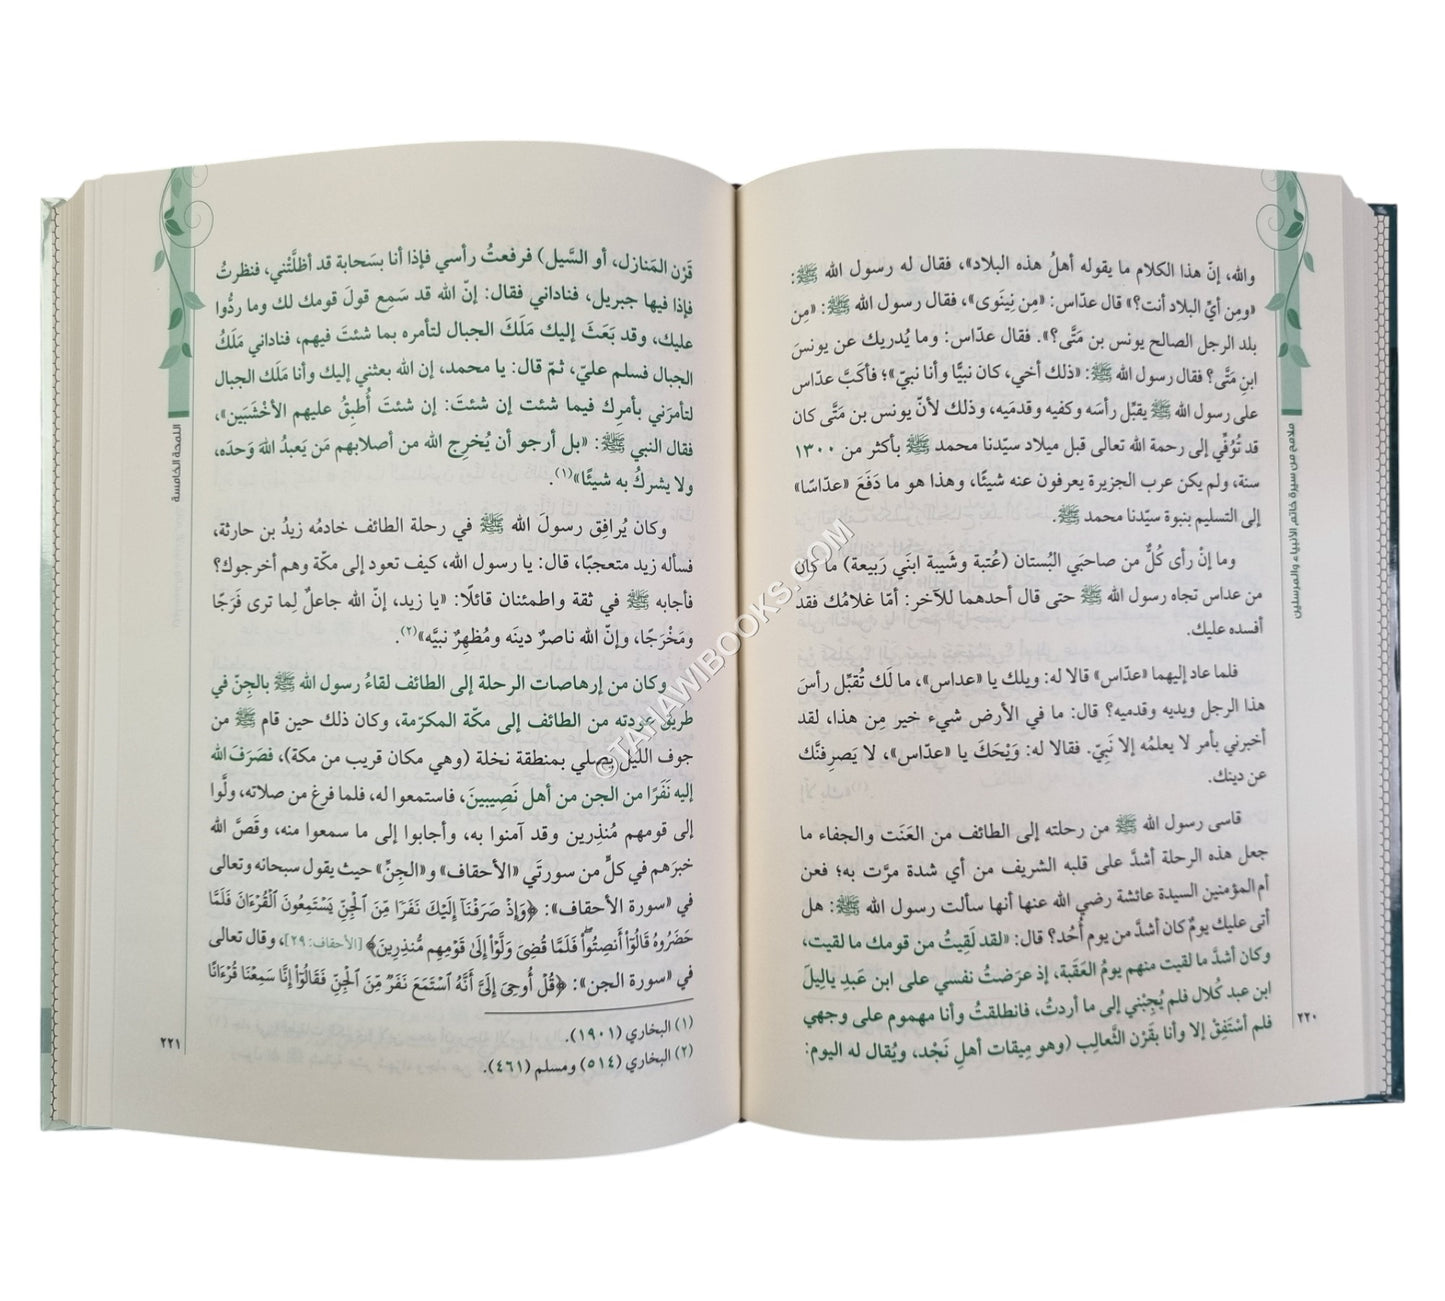 ملامح من سيرة خاتم الأنبياء والمرسلين
والله، إنّ هذا الكلام ما يقوله أهلُ هذه البلاد»، فقال له رسول الله ﷺ:
«ومِن أيِّ البلاد أنت؟» قال عدّاس: «مِن نِينَوى»، فقال رسول الله ﷺ: «مِن
بلد الرجل الصالح يونس بن مَتَّى؟». فقال عدّاس: وما يُدريك عن يونسَ
ابنِ مَتَّى؟ فقال رسول الله ﷺ: «ذلك أخي، كان نبيًّا وأنا نبيّ»؛ فأكَبَّ عدّاس
على رسول الله ﷺ يقبِّل رأسَه وكفيه وقدمَيه، وذلك لأنّ يونس بن مَتَّى كان
قد تُوُفِّي إلى رحمة الله تعالى قبل ميلاد سيّدنا محمد ﷺ بأكثر من ١٣٠٠
سنة، ولم يكن عرب الجزيرة يعرفون عنه شيئًا، وهذا هو ما دَفَعَ «عدّاسًا»
إلى التسليم بنبوة سيّدنا محمد ﷺ.
وما إنْ رأى كُلٌّ من صاحبَي البُستان (عُتبة وشَيبة ابنَي رَبيعة) ما كان
من عداس تجاه رسول الله ﷺ حتى قال أحدهما للآخر: أمّا غلامُك فقد
أفسده عليك.
فلما عاد إليهما «عدّاس» قالا له: ويلك يا «عداس»، ما لَك تُقبِّل رأسَ
هذا الرجل ويديه وقدميه؟ قال: ما في الأرض شيء خير مِن هذا، لقد
أخبرني بأمر لا يعلمُه إلا نَبِيّ. فقالا له: وَيْحَكَ يا «عدّاس»، لا يَصرِفنَّك
عن دينك.
قاسى رسول الله ﷺ من رحلته إلى الطائف من العَنَت والجفاء ما
جعل هذه الرحلة أشدَّ على قلبه الشريف من أي شدة مرَّت به؛ فعن
أم المؤمنين السيدة عائشة رضي الله عنها أنها سألت رسول الله ﷺ: هل
أتى عليك يومٌ كان أشدَّ من يوم أُحُد؟ قال: «لقد لَقِيتُ من قومك ما لقيت،
وكان أشدَّ ما لقيت منهم يومُ العَقَبة، إذ عرَضتُ نفسي على ابن عَبدِ يالِيلَ
ابن عبد كُلال فلم يُجِبْني إلى ما أردتُ، فانطلقتُ وأنا مهموم على وجهي
فلم أسْتَفِقْ إلا وأنا بقَرْن الثَّعالِب (وهو مِيقات أهلِ نَجْد، ويُقال له اليوم:
٢٢٠
اللمحة الخامسة
قَرْن المَنازل، أو السَّيل) فرفعتُ رأسي فإذا أنا بسَحابة قد أظلَّتْني، فنظرتُ
فإذا فيها جبريل، فناداني فقال: إنّ الله قد سَمِع قولَ قومك لك وما ردُّوا
عليك، وقد بَعَثَ إليك مَلَكَ الجبال لتأمره بما شئتَ فيهم، فناداني مَلَكُ
الجبال فسلم عليّ، ثمّ قال: يا محمد، إن الله بعثني إليك وأنا مَلَك الجبال
لتأمرَني بأمرِك فيما شئت إن شئتَ: إن شئتَ أُطبِقُ عليهم الأخْشَبَين»،
فقال النبي ﷺ: «بل أرجو أن يُخرِج الله من أصلابهم مَن يَعبدُ اللهَ وَحدَه،
ولا يشركُ به شيئًا»(١).
وكان يُرافِق رسولَ الله ﷺ في رحلة الطائف خادمُه زيدُ بن حارثة،
فسأله زيد متعجبًا، قال: يا رسول الله، كيف تعود إلى مكة وهم أخرجوك؟
فأجابه ﷺ في ثقة واطمئنان قائلًا: «يا زيد، إنّ الله جاعلٌ لِما ترى فَرَجًا
ومَخْرَجًا، وإنّ الله ناصرٌ دينَه ومُظهِرٌ نبيَّه»(٢).
وكان من إرهاصات الرحلة إلى الطائف لقاءُ رسول الله ﷺ بالجِنّ في
طريق عودته من الطائف إلى مكّة المكرّمة، وكان ذلك حين قام ﷺ من
جوف الليل يصلي بمنطقة نخلة (وهي مكان قريب من مكة)، فصَرَفَ الله
إليه نَفَرًا من الجن من أهل نَصِيبينَ، فاستمعوا له، فلما فرغ من صلاته، ولَّوا
إلى قومهم مُنذِرين وقد آمنوا به، وأجابوا إلى ما سمعوا منه، وقَصَّ الله
خبرَهم في كلٍّ من سورتَي «الأحقاف» و«الجِنّ» حيث يقول سبحانه وتعالى
في «سورة الأحقاف»: ﴿وَإِذْ صَرَفْنَآ إِلَيْكَ نَفَرًا مِّنَ ٱلْجِنِّ يَسْتَمِعُونَ ٱلْقُرْءَانَ فَلَمَّا
حَضَرُوهُ قَالُوٓا۟ أَنصِتُوا۟ ۖ فَلَمَّا قُضِىَ وَلَّوْا۟ إِلَىٰ قَوْمِهِم مُّنذِرِينَ﴾ [الأحقاف: ٢٩]، وقال تعالى
في «سورة الجن»: ﴿قُلْ أُوحِىَ إِلَىَّ أَنَّهُ ٱسْتَمَعَ نَفَرٌ مِّنَ ٱلْجِنِّ فَقَالُوٓا۟ إِنَّا سَمِعْنَا قُرْءَانًا
(١) البخاري (١٩٠١).
(٢) البخاري (٥١٤) ومسلم (٤٦١).
٢٢١
©TAHAWIBOOKS.COM